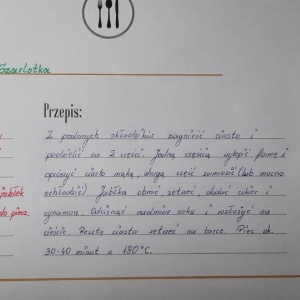 Szarlotka
Przepis:
Z podanych składników zagnieść ciasto i
podzielić na 2 części. Jedną częścią wylepić formę i
oprószyć ciasto mąką, drugą część zamrozić (lub mocno
schłodzić). Jabłka obrać, zetrzeć, dodać cukier i
cynamon. Odcisnąć nadmiar soku i rozłożyć na
cieście. Resztę ciasta zetrzeć na tarce. Piec ok.
30-40 minut w 180°C.
jabłek
do piecz.